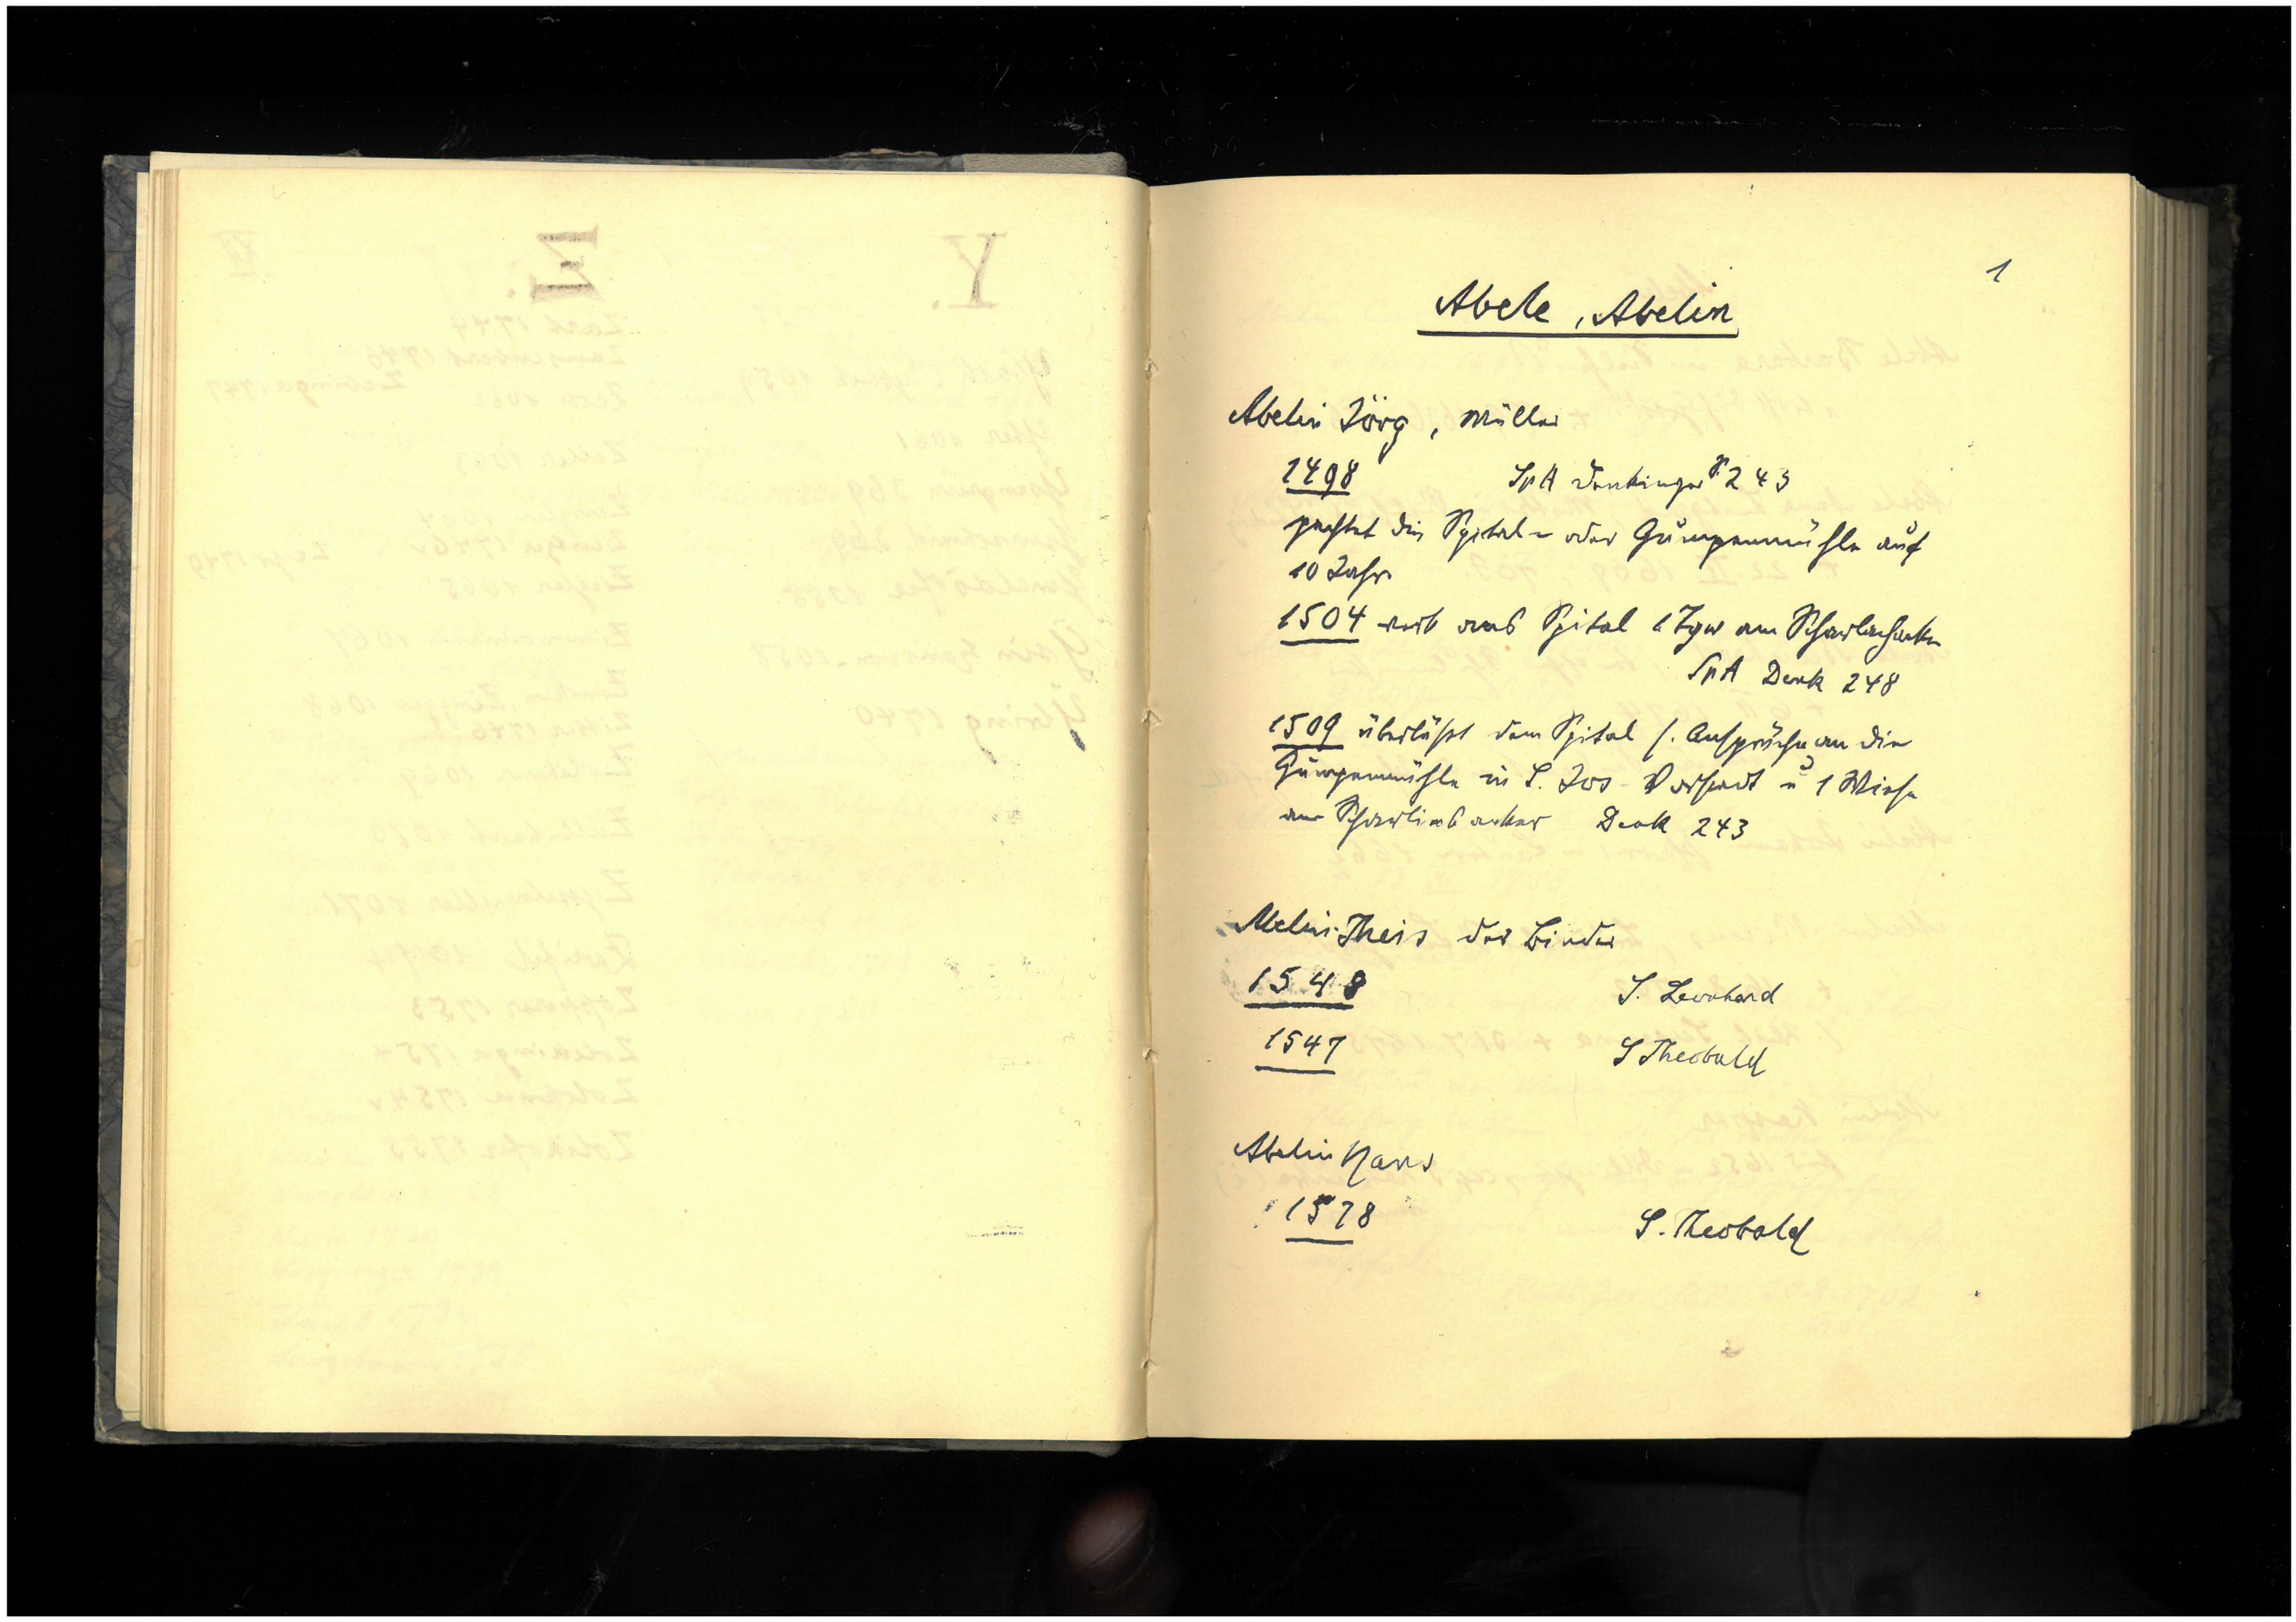 1
Abele, Abelin
Abelin Jörg, Müller
1498 SpA Denkinger S. 243
pachtet die Spital- oder Gumpenmühle auf
10 Jahr
1504 verk ans Spital 1 Tgw am Scharlachacker
SpA Denk 248
1509 überläßt dem Spital s. Ansprüche an die
Gumpenmühle in S. Jos-Vorstadt u 1 Wiese
am acker Denk 243
Abelin Theis der Binder
1548 S. Leonhard
1547 S Theobald
Abelin Hans
1578 S. Theobald